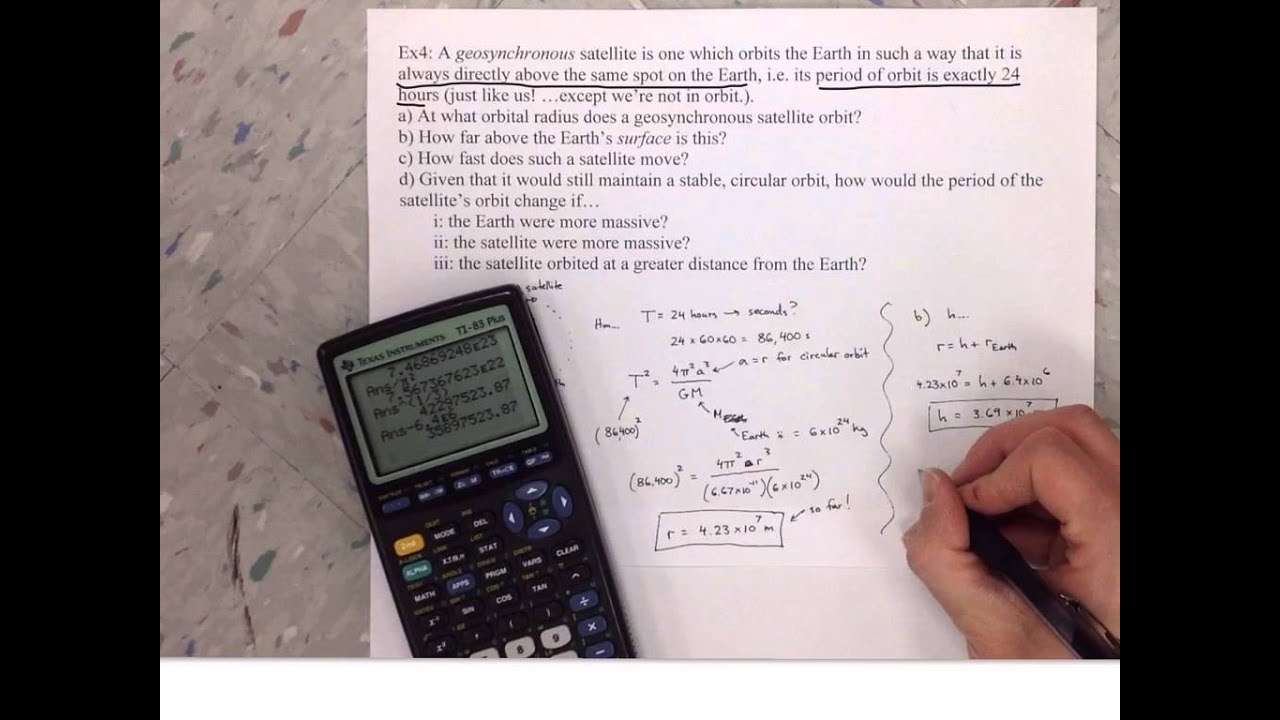 Ex4: A geosynchronous satellite is one which orbits the Earth in such a way that it is
always directly above the same spot on the Earth, i.e. its period of orbit is exactly 24
hours (just like us! …except we're not in orbit.).
a) At what orbital radius does a geosynchronous satellite orbit?
b) How far above the Earth's surface is this?
c) How fast does such a satellite move?
d) Given that it would still maintain a stable, circular orbit, how would the period of the
satellite's orbit change if…
i: the Earth were more massive?
ii: the satellite were more massive?
iii: the satellite orbited at a greater distance from the Earth?
satellite
Hm...
T = 24 hours → seconds?
24 × 60×60 = 86,400 s
T² = 4π²a³ / GM
a = r for circular orbit
(86,400)²
Earth is = 6×10²⁴ kg
(86,400)² = 4π² r³ / (6.67×10⁻¹¹)(6×10²⁴)
r = 4.23×10⁷ m
so far!
b) h...
r = h + rEarth
4.23×10⁷ = h + 6.4×10⁶
h = 3.69×10⁷
TEXAS INSTRUMENTS TI-83 Plus
7.46869248E23
Ans/π²
Ans^(1/3)
42297523.87
Ans-6.4E6
35897523.87
2nd
MODE
DEL
ALPHA
X,T,θ,n
STAT
MATH
APPS
PRGM
VARS
CLEAR
SIN
COS
TAN
8
9